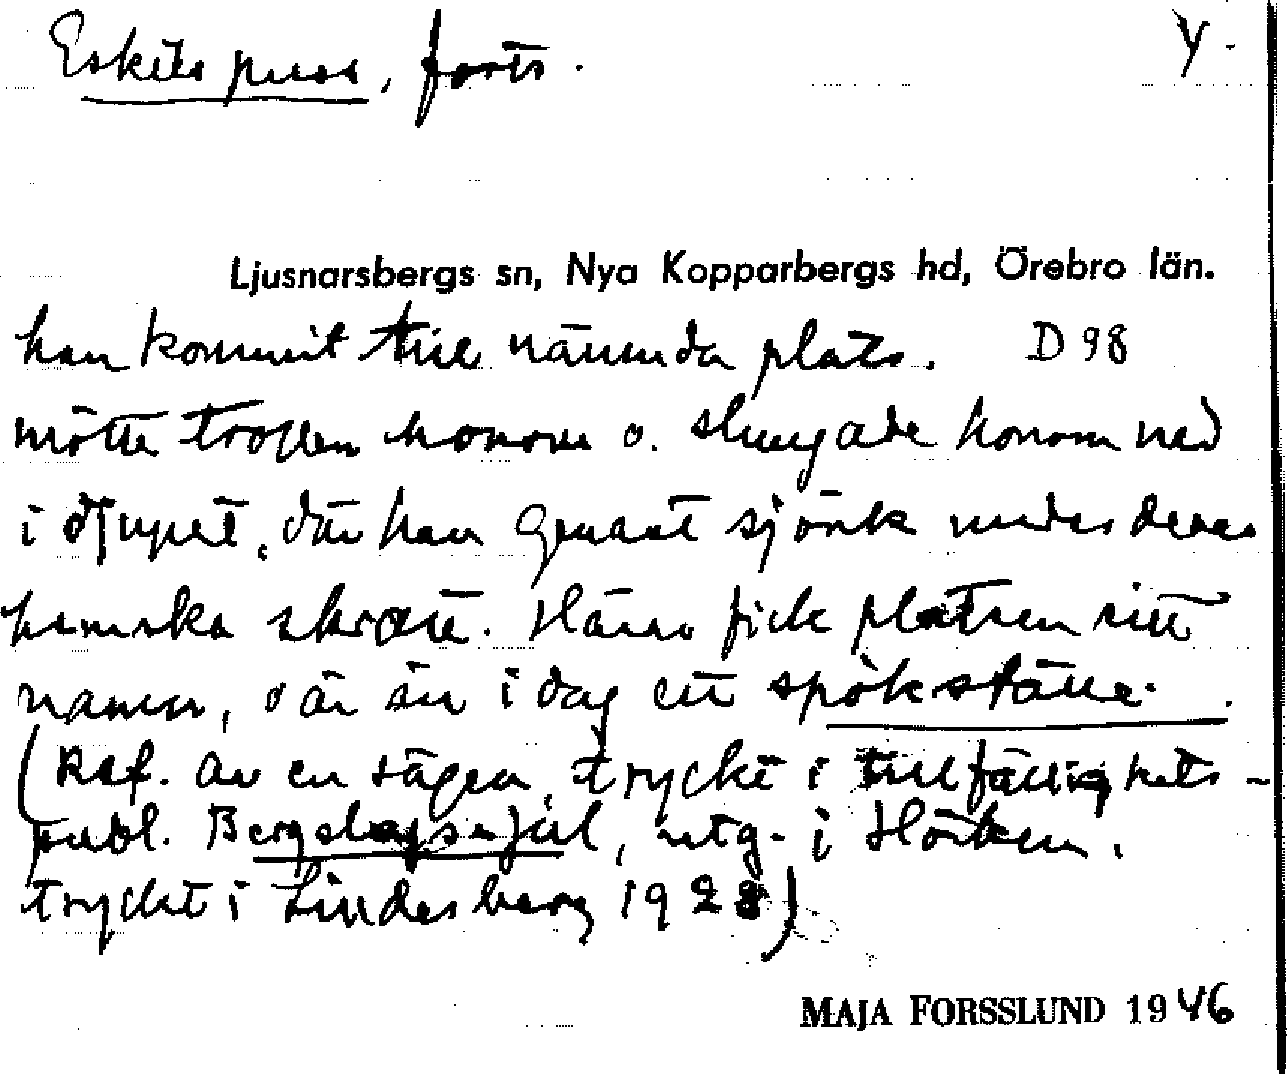 Eskils puss, forts. 4.
Ljusnarsbergs sn, Nya Kopparbergs hd, Örebro län.
han kommit till nämnda plats. D 98
mötte trollen honom o. slungade honom ned
i djupet, där han genast sjönk under deras
hemska skratt. Härav fick platsen sitt
namn, o är än i dag ett spökställe.
(Ref. av en sägen, tryckt i tillfällighets-
publ. Bergslagsjul, utg. i Hörken,
tryckt i Lindesberg 1928)
MAJA FORSSLUND 1946